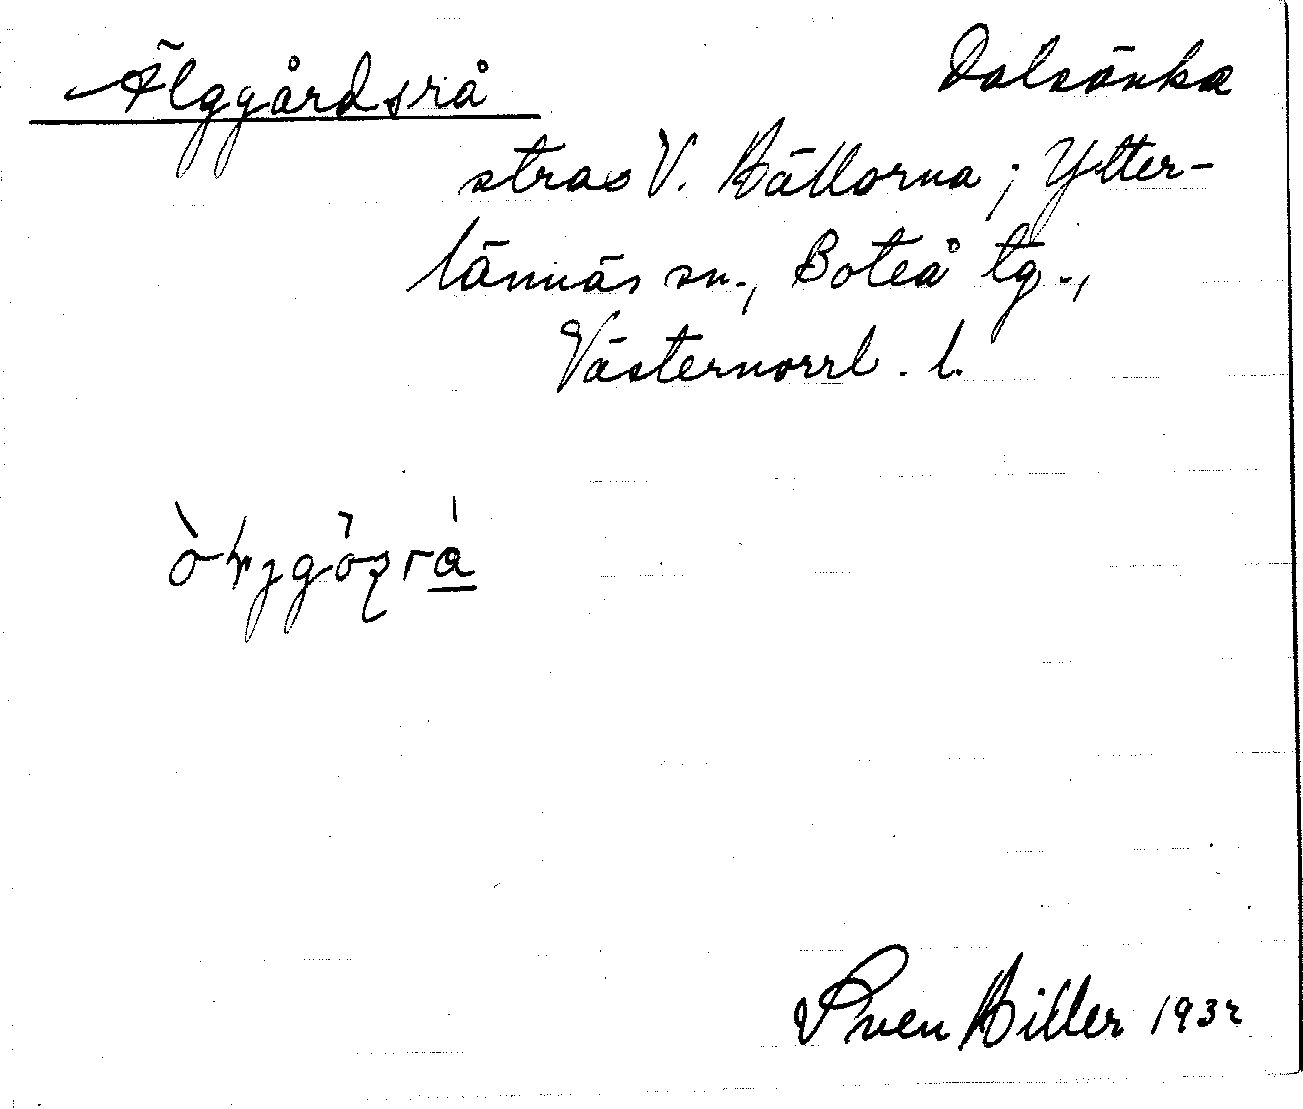 Älggårdsrå
Dalsänka
strax V. Hällorna; Ytter-
lännäs sn., Boteå tg.,
Västernorrl. l.
Sven Hiller 1932